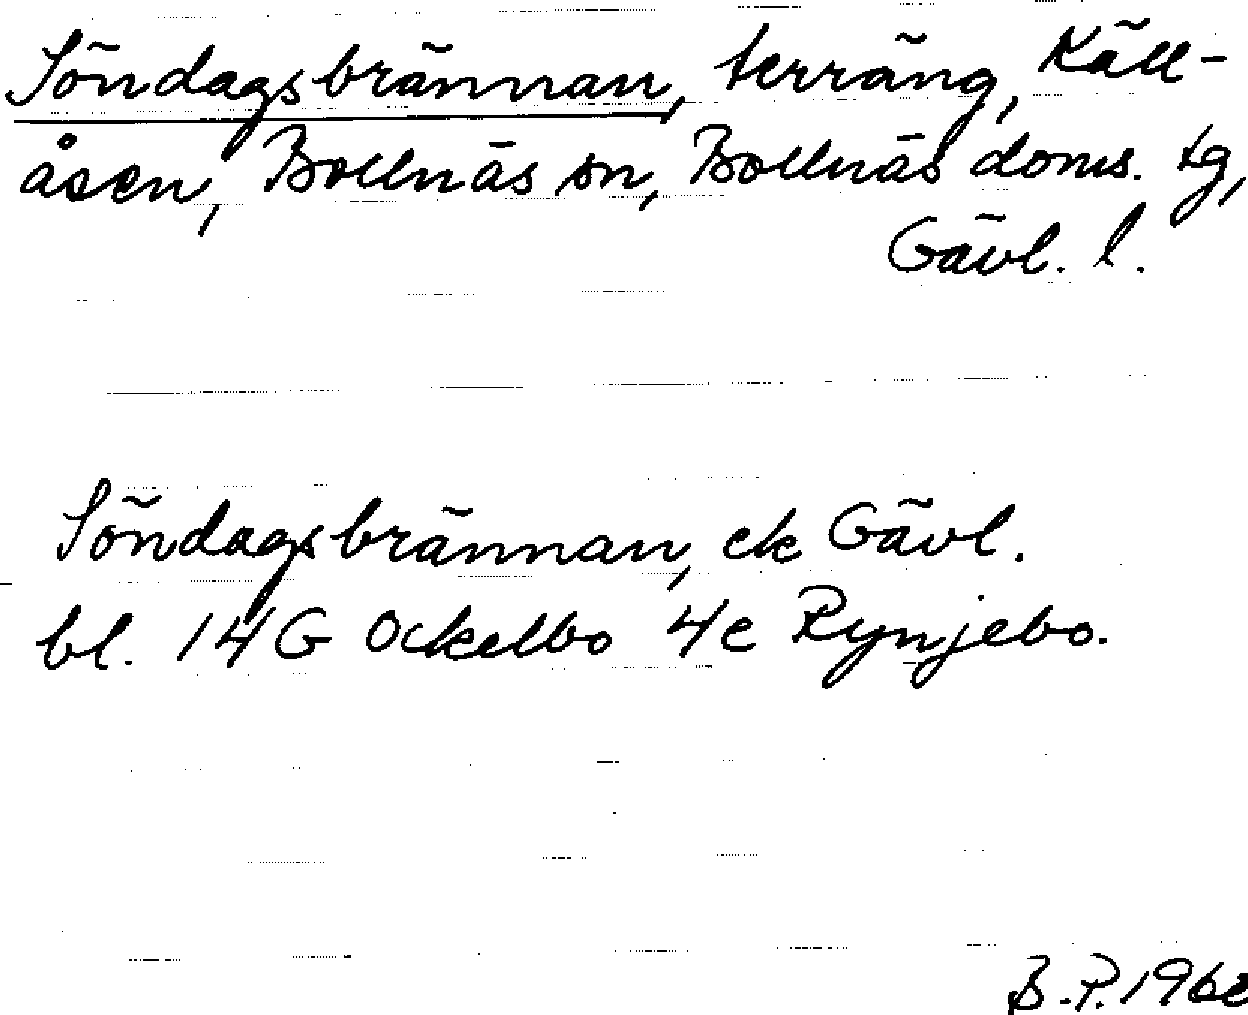 Söndagsbrännan, terräng, Käll-
åsen, Bollnäs sn, Bollnäs doms. tg,
Gävl. l.
Söndagsbrännan, ek Gävl.
bl. 14G Ockelbo 4e Rynjebo.
B.P.